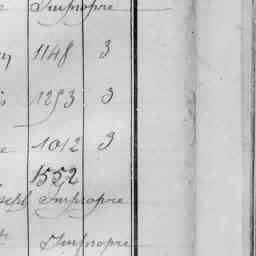 Impropre
1148 3
1253 3
1012 3
1552
Impropre
Impropre